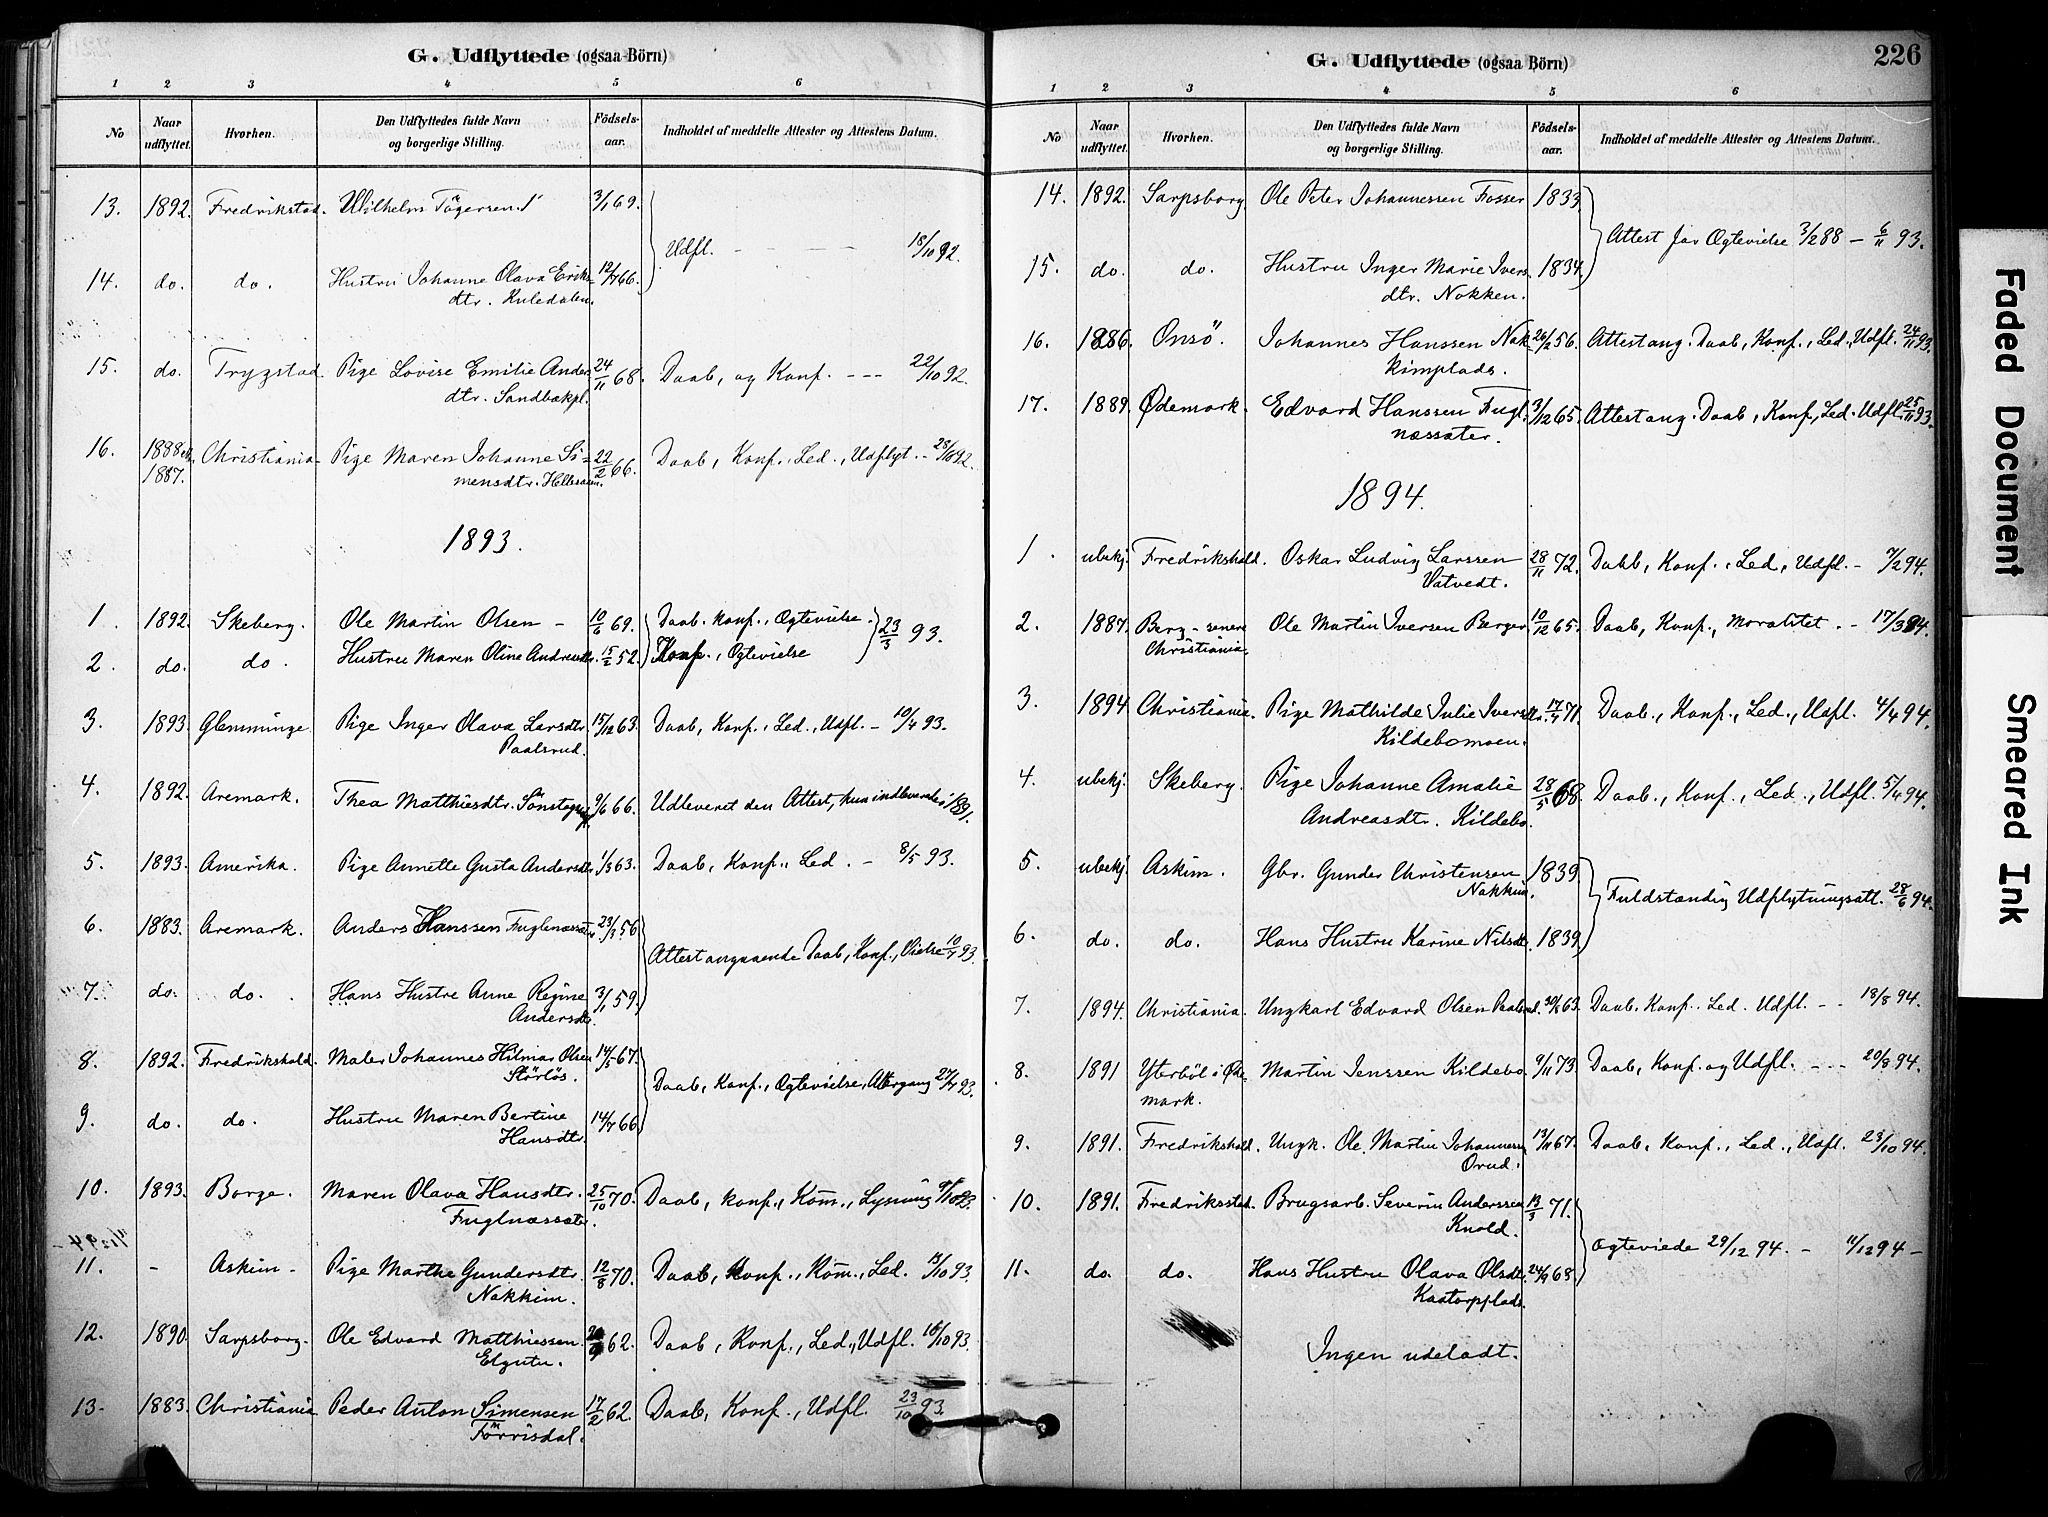 G. Udflyttede (ogsaa Börn)
1 2 3 4 5 6
No Naar udflyttet. Hvorhen. Den Udflyttedes fulde Navn og borgerlige Stilling. Födsels-aar. Indholdet af meddelte Attester og Attestens Datum.
13. 1892. Fredrikstad. Wilhelm Tögersen 3/1 69.
Udfl. - - - - 18/10 92.
14. do. do. Hustru Johanne Olava Eriks- 12/7 66.
dtr. Kuledalen.
15. do. Trygstad. Pige Lovise Emilie Anders 24/11 68. Daab, og Konf. --- 22/10 92.
dtr. Sandbækpl.
16. 1888 Christiania Pige Maren Johanne Si- 22/2 66. Daab, Konf., Led., Udflyt. - 28/10 92.
1887. mensdtr.
1893.
1. 1892. Skeberg. Ole Martin Olsen - 10/6 69. Daab. Konf., Ogtevielse. 23/3 93.
2. do. do. Hustru Maren Oline Andreasdtr. 15/2 52. Konf., Ogtevielse
3. 1893. Glemminge. Pige Inger Olava Larsdtr. 15/12 63. Daab, Konf., Led., Udfl. - 10/4 93.
Paalsrud.
4. 1892. Aremark. Thea Matthiesdtr. 9/6 66. Udleveret den Attest, hun indleverede i 1891.
5. 1893. Amerika. Pige Annette Gusta Andersdtr. 1/3 63. Daab, Konf., Led. - 8/5 93.
6. 1883. Aremark. Anders Hanssen Fuglenæssæter 23/3 56
Attest angaaende Daab, Konf., Vielse 10/7 93.
7. do. do. Hans Hustru Anne Regine 3/1 59.
Andersdtr.
8. 1892. Fredrikshald. Maler Johannes Hilmar Olsen 14/5 67.
Störlös.
Daab, Konf., Ogtevielse, Altergang 27/7 93.
9. do. do. Hustru Maren Bertine 14/7 66.
Hansdtr.
10. 1893. Borge. Maren Olava Hansdtr. 25/10 70. Daab, Konf., Kom., Lysning 9/10 93.
Fuglnæssæter.
11. - Askim - Pige Marthe Gundersdtr. 12/8 70. Daab, Konf., Kom., Led. 13/10 93.
Nakkim.
12. 1890. Sarpsborg. Ole Edvard Matthiessen 62. Daab, Konf., Led., Udfl. 16/10 93.
Elgetu.
13. 1883. Christiania Peder Anton Simensen 17/2 62. Daab, Konf., Udfl. 23/10 93.
Förrisdal.
G. Udflyttede (ogsaa Börn)
226
1 2 3 4 5 6
No Naar udflyttet. Hvorhen. Den Udflyttedes fulde Navn og borgerlige Stilling. Födsels-aar. Indholdet af meddelte Attester og Attestens Datum.
14. 1892. Sarpsborg. Ole Peter Johannessen Fosser 1833.
Attest for Ogtevielse 3/2 88 - 6/11 93.
15. do. do. Hustru Inger Marie Ivers- 1834.
dtr. Nokken.
16. 1886. Onsö. Johannes Hanssen Nak- 26/2 56. Attest ang. Daab, Konf., Led., Udfl. 24/11 93.
kimplads.
17. 1889. Ødemark. Edvard Hanssen Fugl- 3/12 65. Attest ang. Daab, Konf., Led. Udfl. 25/11 93.
næssæter.
1894.
1. ubekj. Fredrikshald. Oskar Ludvig Larssen 28/11 72. Daab, Konf., Led, Udfl. - 7/2 94.
Vatvedt.
2. 1887. Berg - senere Ole Martin Iversen Berger 10/12 65. Daab, Konf., Moralitet. - 17/3 94.
Christiania.
3. 1894. Christiania. Pige Mathilde Julie Iversdtr. 17/4 71. Daab., Konf., Led., Udfl. 4/4 94.
Kildebomoen.
4. ubekj. Skeberg. Pige Johanne Amalie 28/5 68. Daab., Konf., Led., Udfl. 5/4 94.
Andreasdtr. Kildebo.
5. ubekj. Askim. Gbr. Gunder Christensen 1839.
Nakkim.
Fuldstændig Udflytningsatt. 28/6 94.
6. do. do. Hans Hustru Karine Nilsdtr. 1839.
7. 1894. Christiania. Ungkarl Edvard Olsen Paalsrud. 63. Daab, Konf., Led. Udfl. -- 18/8 94.
8. 1891 Ytterböl i Øde- Martin Jenssen Kildebo. 9/11 73. Daab, Konf. og Udfl. --- 20/8 94.
mark.
9. 1891. Fredrikshald. Ungk. Ole Martin Johannessen 13/11 67. Daab, Konf., Led., Udfl. 23/10 94.
Orud.
10. 1891. Fredriksstad. Brugsarb. Severin Anderssen 13/3 71.
Knold.
Ogteviede 29/12 94. - 11/12 94 -
11. do. do. Hans Hustru Olava Olsdtr. 24/9 68.
Kaatorpplads.
Ingen udeladt.
Faded Document
Smeared Ink